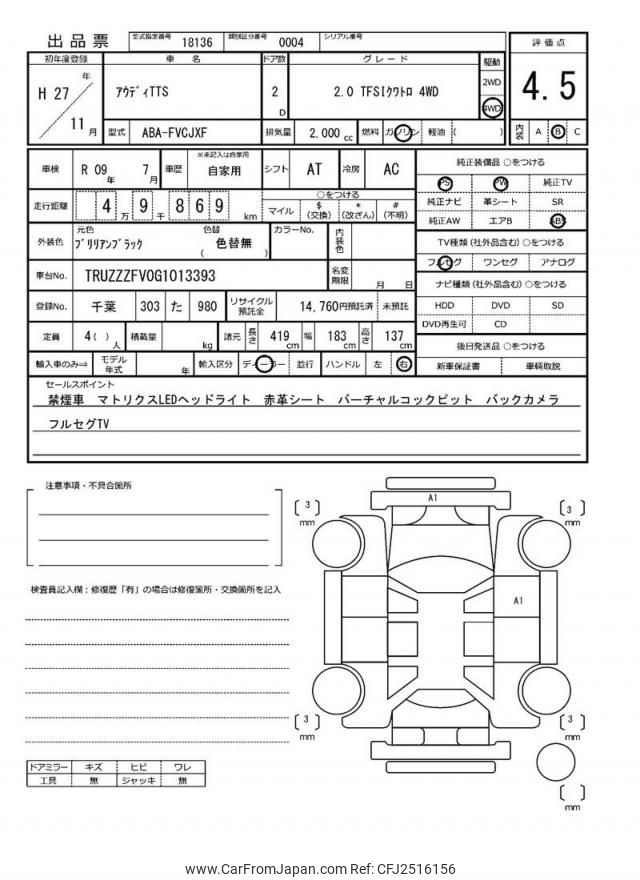 出品票
型式指定番号 18136 類別区分番号 0004 シリアル番号
初年度登録 車 名 ドア数 グレード 駆動 評価点
H 27 年 11 月
アウディTTS 2 D 2.0 TFSIクワトロ 4WD 2WD 4WD 4.5
型式 ABA-FVCJXF 排気量 2,000 cc 燃料 ガソリン 軽油 ( ) 内装 A B C
車検 R 09 年 7 月 車歴 ※未記入は自家用 自家用 シフト AT 冷房 AC
走行距離 4 万 9 千 8 6 9 km
○をつける
マイル $ (交換) * (改ざん) # (不明)
外装色 元色 ブリリアンブラック 色替 色替無 ( ) カラーNo. 内装色
車台No. TRUZZZFV0G1013393 名変期限 月 日
登録No. 千葉 303 た 980 リサイクル預託金 14,760円預託済 未預託
定員 4 ( ) 人 積載量 kg 諸元 長さ 419 cm 幅 183 cm 高さ 137 cm
輸入車のみ⇒ モデル年式 年 輸入区分 ディーラー 並行 ハンドル 左 右
純正装備品 ○をつける
PS PW 純正TV
純正ナビ 革シート SR
純正AW エアB ABS
TV種類 (社外品含む) ○をつける
フルセグ ワンセグ アナログ
ナビ種類 (社外品含む) ○をつける
HDD DVD SD
DVD再生可 CD
後日発送品 ○をつける
新車保証書 車輌取説
セールスポイント
禁煙車 マトリクスLEDヘッドライト 赤革シート バーチャルコックピット バックカメラ
フルセグTV
注意事項・不具合箇所
検査員記入欄：修復歴「有」の場合は修復箇所・交換箇所を記入
ドアミラー キズ ヒビ ワレ
工具 無 ジャッキ 無
A1
3 mm
3 mm
A1
3 mm
3 mm
mm
www.CarFromJapan.com Ref: CFJ2516156